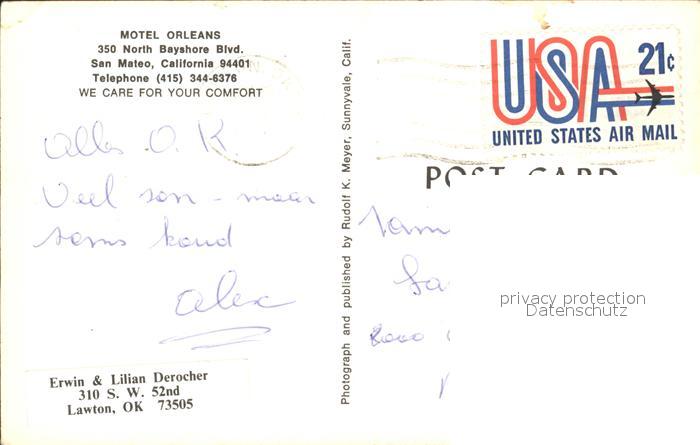 MOTEL ORLEANS
350 North Bayshore Blvd.
San Mateo, California 94401
Telephone (415) 344-6376
WE CARE FOR YOUR COMFORT
Alles O.K.
Veel zon - maar
soms koud
Alex
Erwin & Lilian Derocher
310 S. W. 52nd
Lawton, OK 73505
Photograph and published by Rudolf K. Meyer, Sunnyvale, Calif.
USA 21c
UNITED STATES AIR MAIL
POST CARD
privacy protection
Datenschutz